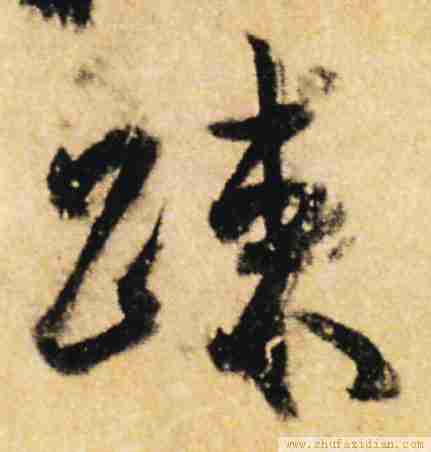 踈
www.shufazidian.com